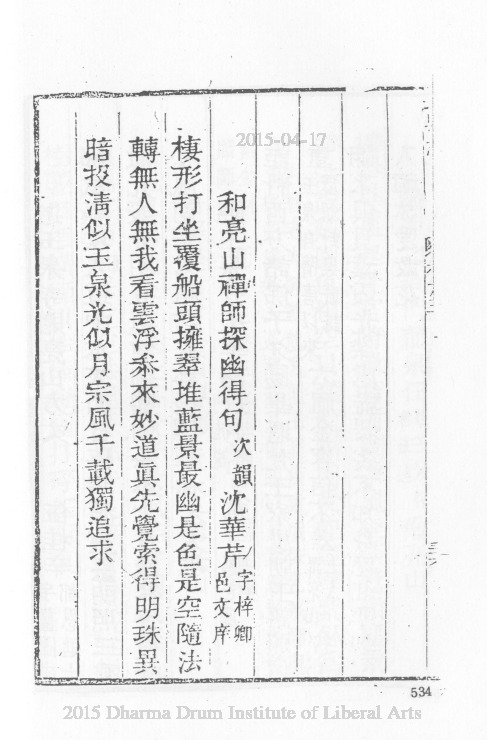 2015-04-17
和亮山禪師探幽得句 次韻 沈華芹 字梓卿 邑文庠
棲形打坐覆船頭擁翠堆藍景最幽是色是空隨法
轉無人無我看雲浮叅來妙道眞先覺索得明珠異
暗投清似玉泉光似月宗風千載獨追求
534
2015 Dharma Drum Institute of Liberal Arts